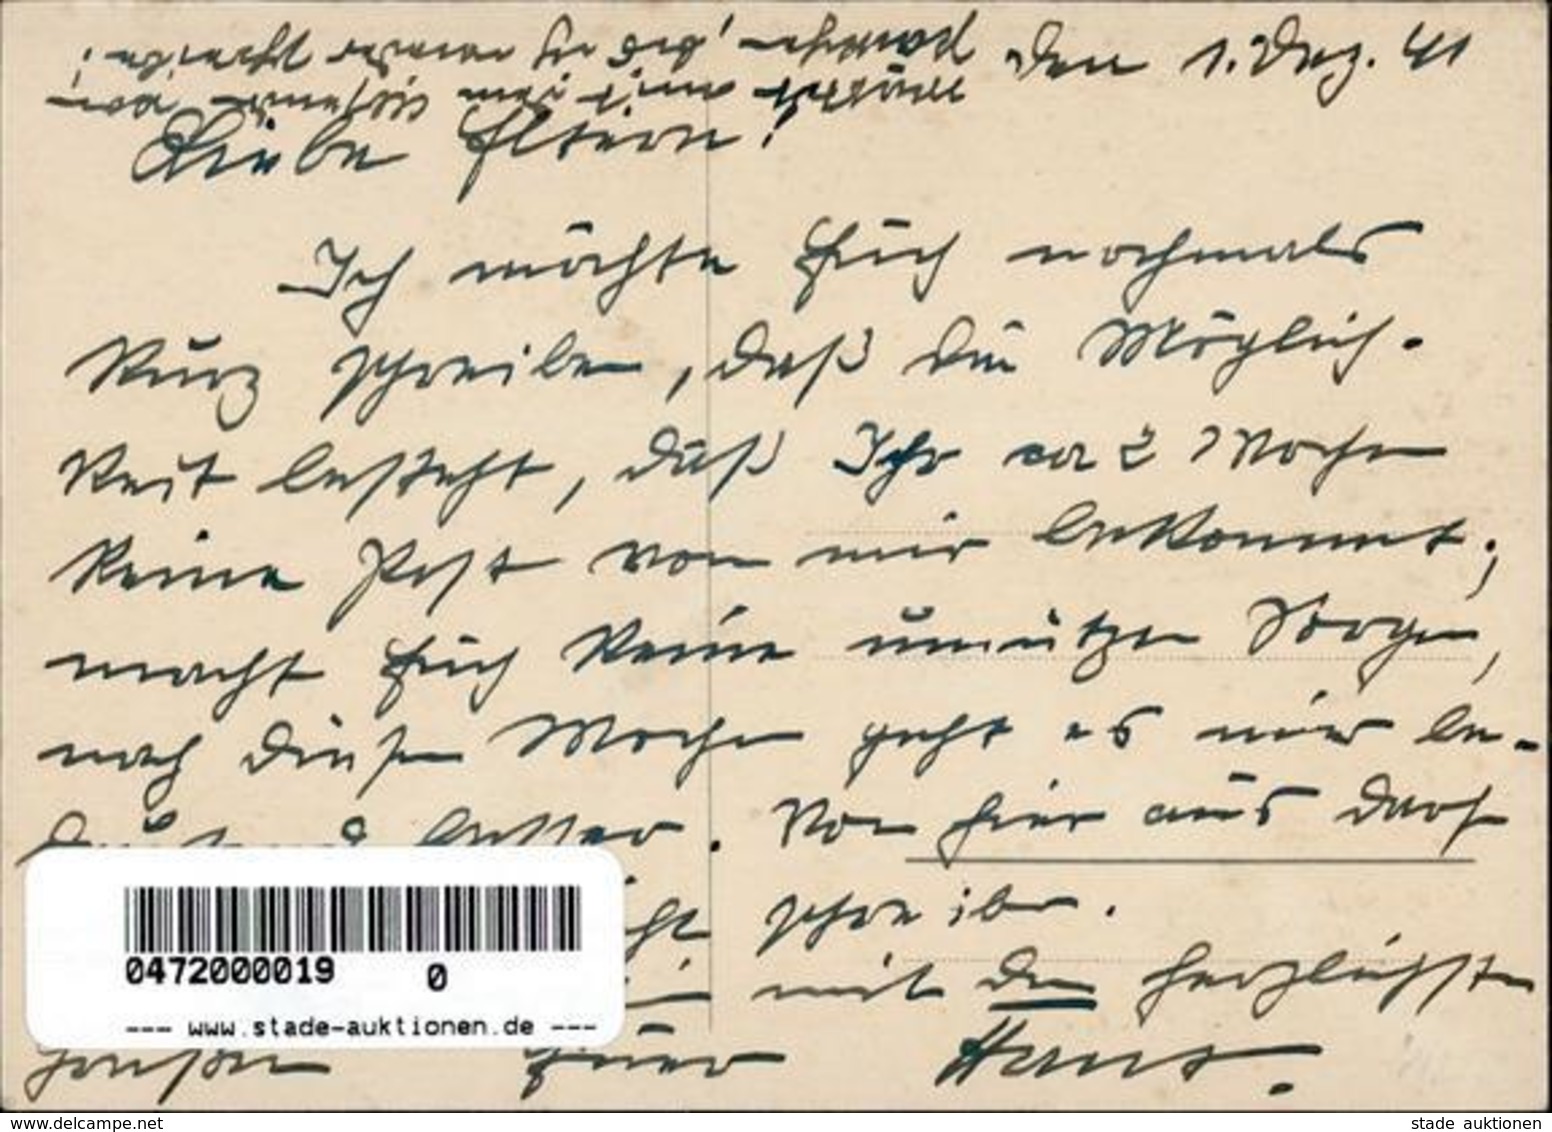 den 1. Dez. 41
Liebe Eltern!
Ich möchte Euch nochmals
kurz schreiben, daß die Möglich-
keit besteht, daß Ihr ca 2 Wochen
keine Post von mir bekommt;
macht Euch keine unnützen Sorgen,
nach diesen Wochen geht es mir be-
deutend besser. Von hier aus darf
schreiben.
mit den herzlichsten
Grüßen Euer Hans.
müßt mit dem
, bis ich wieder schreibe!
0472000019 0
--- www.stade-auktionen.de ---
www.delcampe.net
stade auktionen